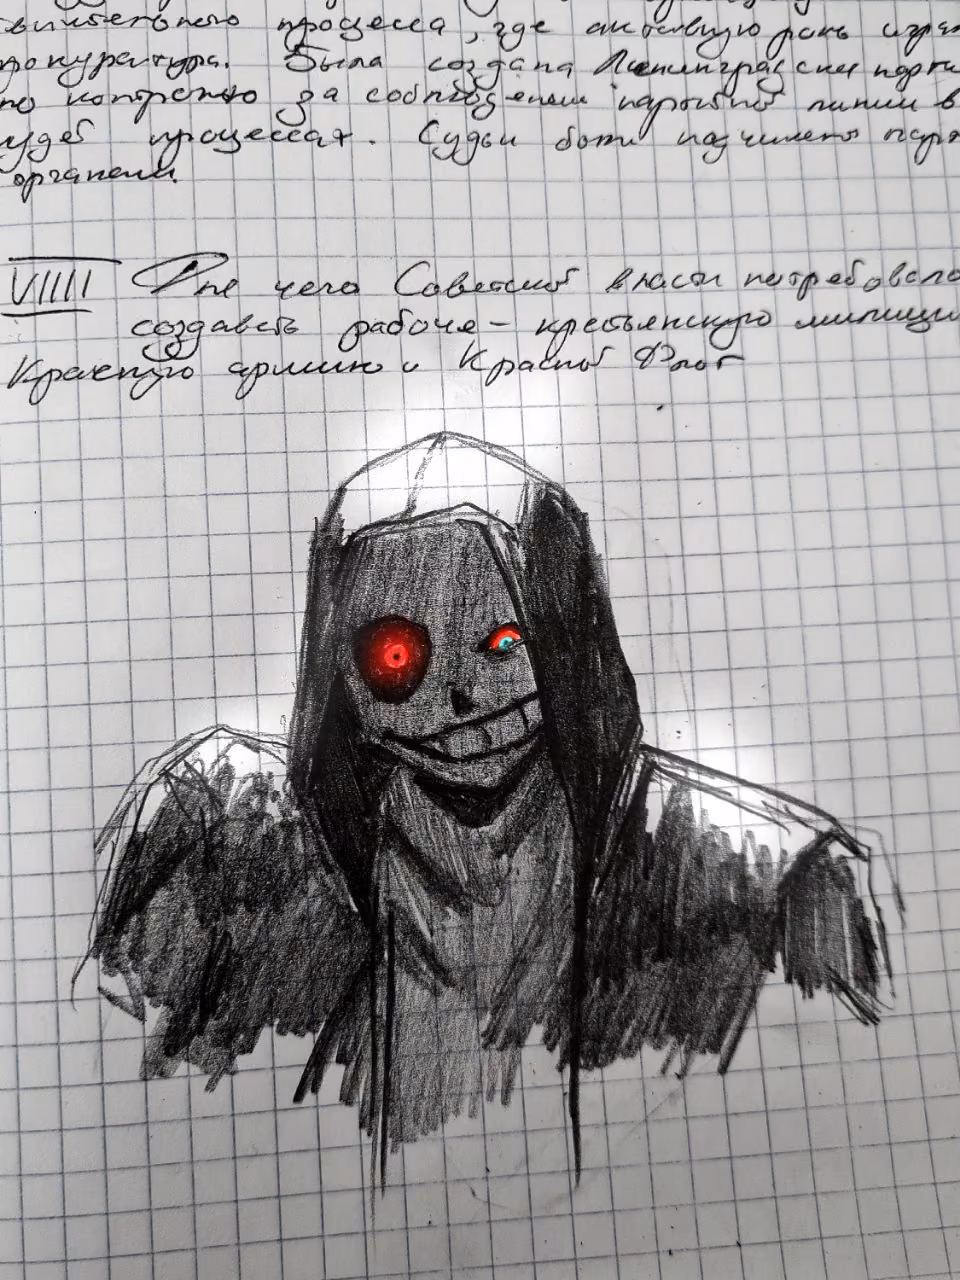 процесса, где активную роль играе
прокуратура. Была создана Ленинградский парти
по контролю за соблюдением партийной линии в
судеб процессах. Судьи были подчинены парт
органам.
VIIII Для чего Советской власти потребовало
создавать рабоче-крестьянскую милици
Красную армию и Красный Флот